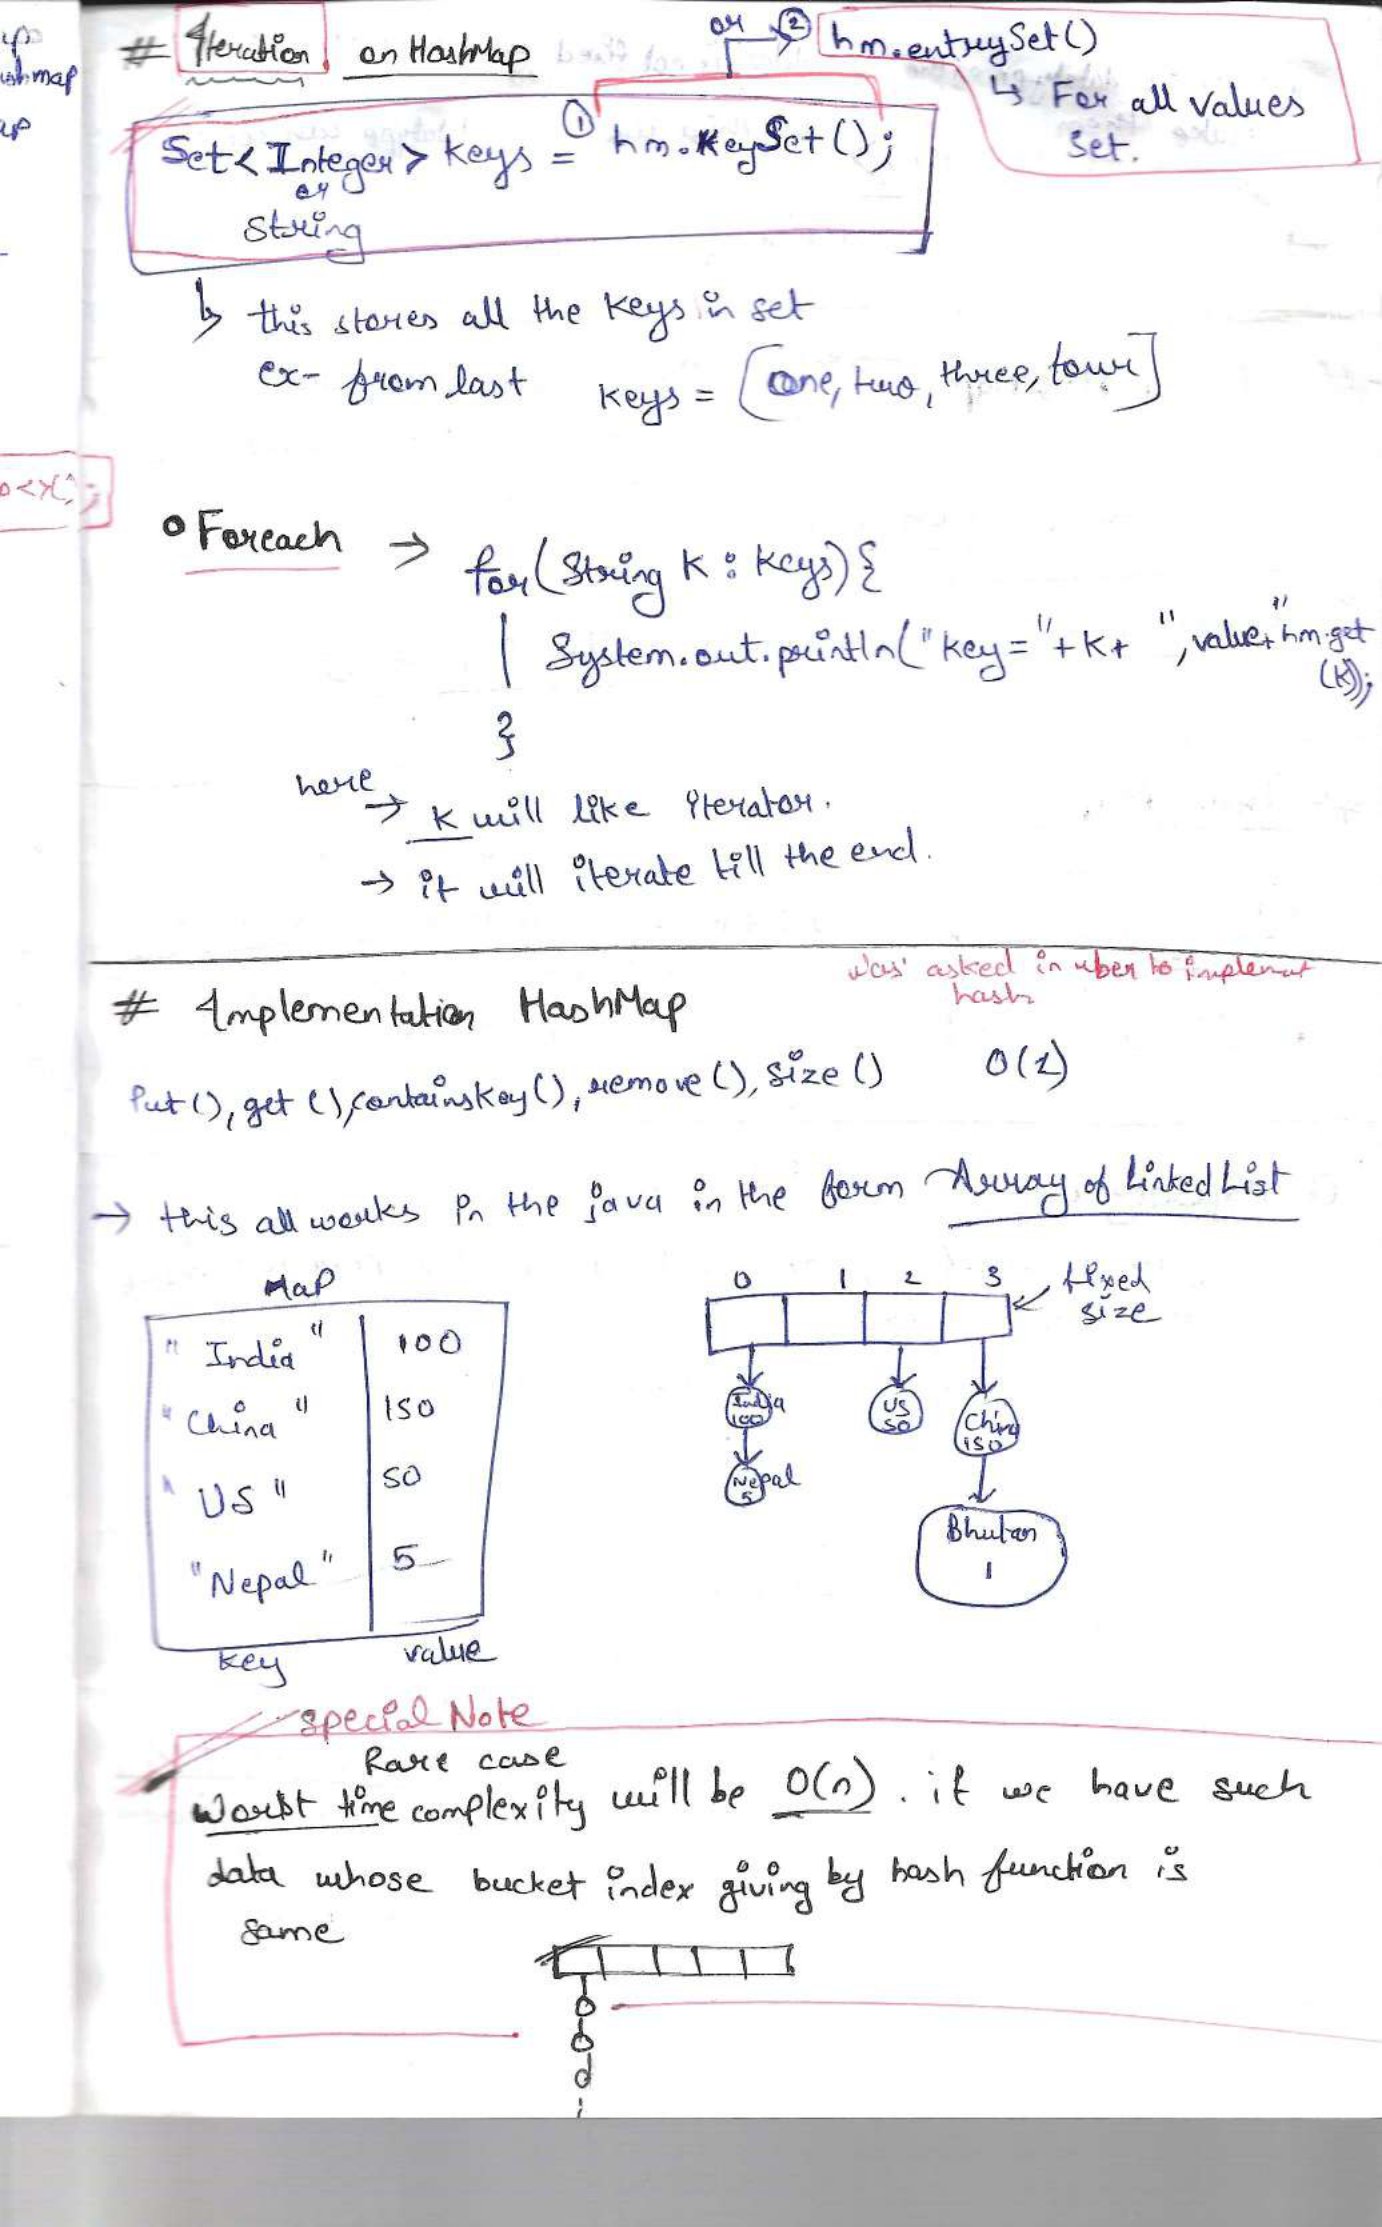 # Iteration on HashMap
or → ② hm.entrySet()
↳ For all values
Set.
Set<Integer> keys = ① hm.KeySet();
or
String
↳ this stores all the keys in set
ex- from last keys = [one, two, three, four]
• Foreach → for(String K : keys){
System.out.println("key="+K+ ",value+"hm.get
(K));
}
here
→ K will like iterator.
→ it will iterate till the end.
was asked in uber to implement
hash
# Implementation HashMap
Put(), get(), containsKey(), remove(), size() O(1)
→ this all works in the java in the form Array of Linked List
Map
"India" 100
"China" 150
"US" 50
"Nepal" 5
key value
0 1 2 3 fixed
size
India
100
US
50
China
150
Nepal
5
Bhutan
1
special Note
Rare case
Worst time complexity will be O(n). if we have such
data whose bucket index giving by hash function is
same